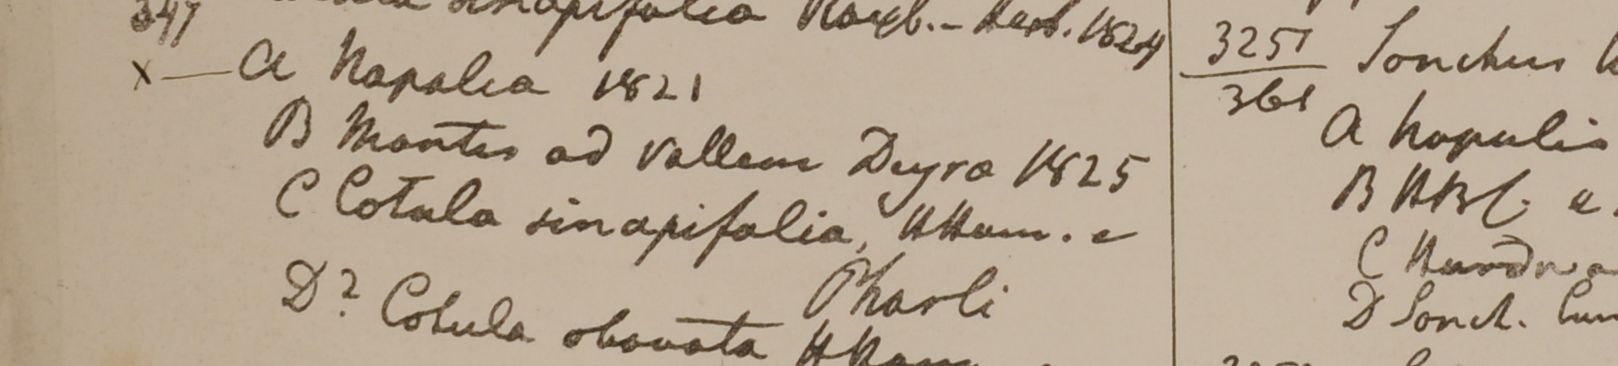 347 sinapifolia Roxb. - Herb. 1824
x — a Napalia 1821
B Montes ad vallem Deyra 1825
C Cotula sinapifolia, HHam. e
Pharli
D? Cotula obovata HHam
3251 Sonchus
361
a Napulis
B HBC. e
C
D Sonch.